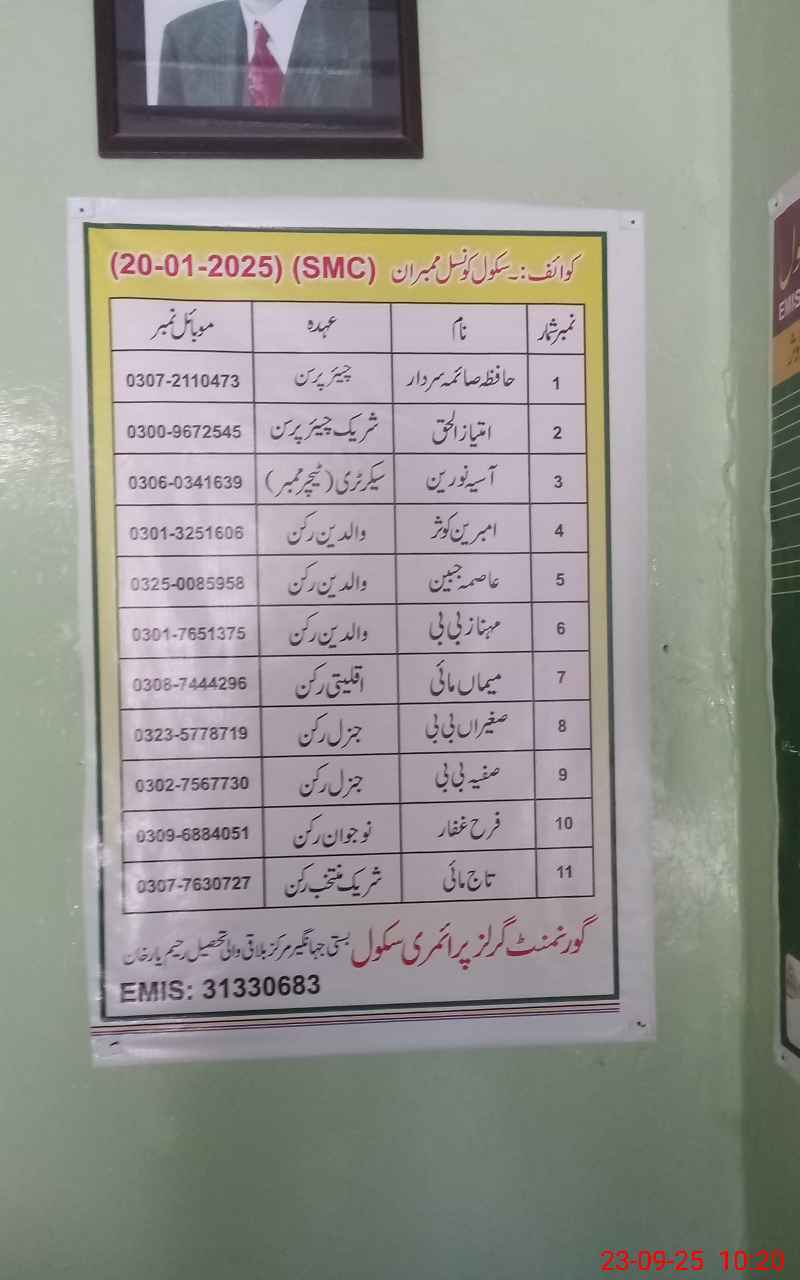 کوائف:۔ سکول کونسل ممبران (SMC) (20-01-2025)
نمبر شمار نام عہدہ موبائل نمبر
1 حافظہ صائمہ سردار چیئر پرسن 0307-2110473
2 امتیاز الحق شریک چیئر پرسن 0300-9672545
3 آسیہ نورین سیکرٹری (ٹیچر ممبر) 0306-0341639
4 امبرین کوثر والدین رکن 0301-3251606
5 عاصمہ جبین والدین رکن 0325-0085958
6 مہناز بی بی والدین رکن 0301-7651375
7 میماں مائی اقلیتی رکن 0308-7444296
8 صغیراں بی بی جنرل رکن 0323-5778719
9 صفیہ بی بی جنرل رکن 0302-7567730
10 فرح غفار نوجوان رکن 0309-6884051
11 تاج مائی شریک منتخب رکن 0307-7630727
گورنمنٹ گرلز پرائمری سکول بستی جہانگیر مرکز بلاقی والی تحصیل رحیم یار خان
EMIS: 31330683
EMIS
23-09-25 10:20